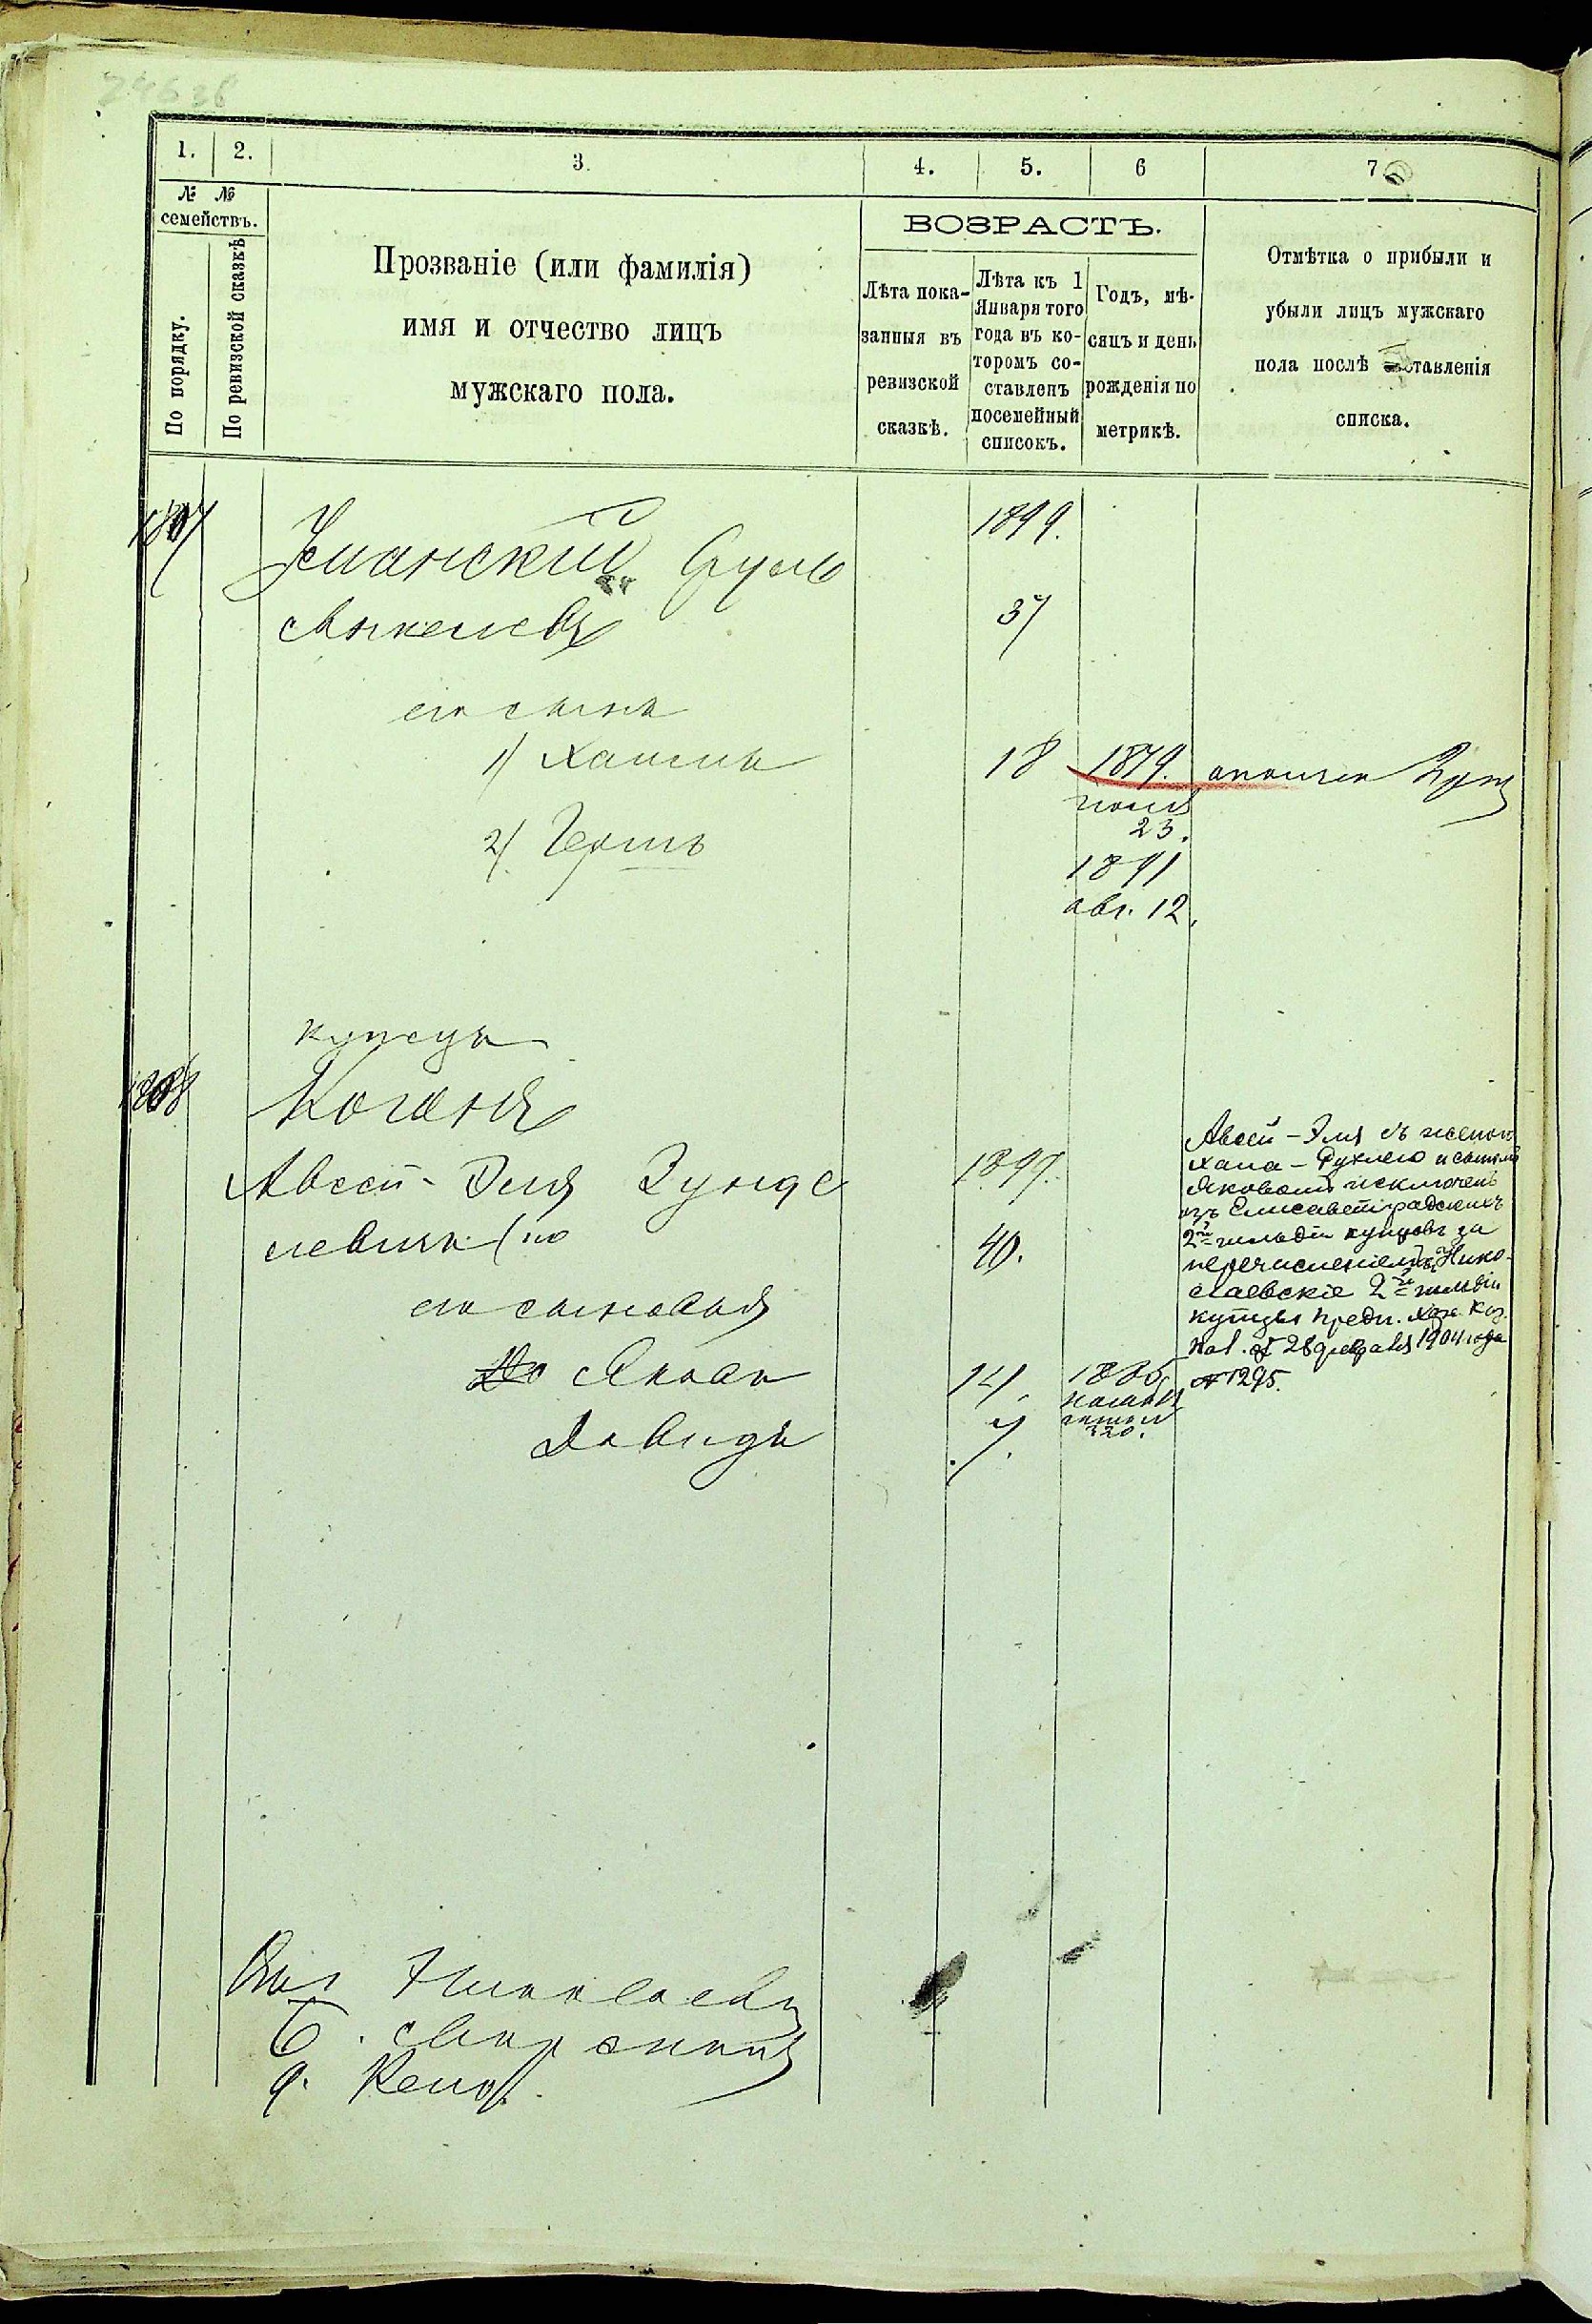 1. 2. 3. 4. 5. 6 7
№ № семействъ.
По порядку.
По ревизской сказкѣ
Прозваніе (или фамилія)
имя и отчество лицъ
мужскаго пола.
ВОЗРАСТЪ.
Лѣта показанныя въ ревизской сказкѣ.
Лѣта къ 1 Января того года въ которомъ составленъ посемейный списокъ.
Годъ, мѣсяцъ и день рожденія по метрикѣ.
Отмѣтка о прибыли и
убыли лицъ мужскаго
пола послѣ составленія
списка.
1807 Уманский Сруль 1899.
37
его сынъ
1) Хаимъ 18 1879.
23.
2) Гершъ
1891
авг. 12.
купецъ
1808 Коганъ
Авсей-Эля Зунде 1899.
левичъ 40.
его сыновья
Яковъ 14. 188
Давидъ 7.
20.
Авсей-Эля съ женою
Хана-Рухлею и сыномъ
Яковомъ исключенъ
изъ Елисаветградскихъ
2й гильдіи купцовъ за
перечисленіемъ въ Нико-
лаевскіе 2й гильдіи
купцы предп. Хер. Каз.
Пал. от 28 февраля 1904 года
№ 1295.